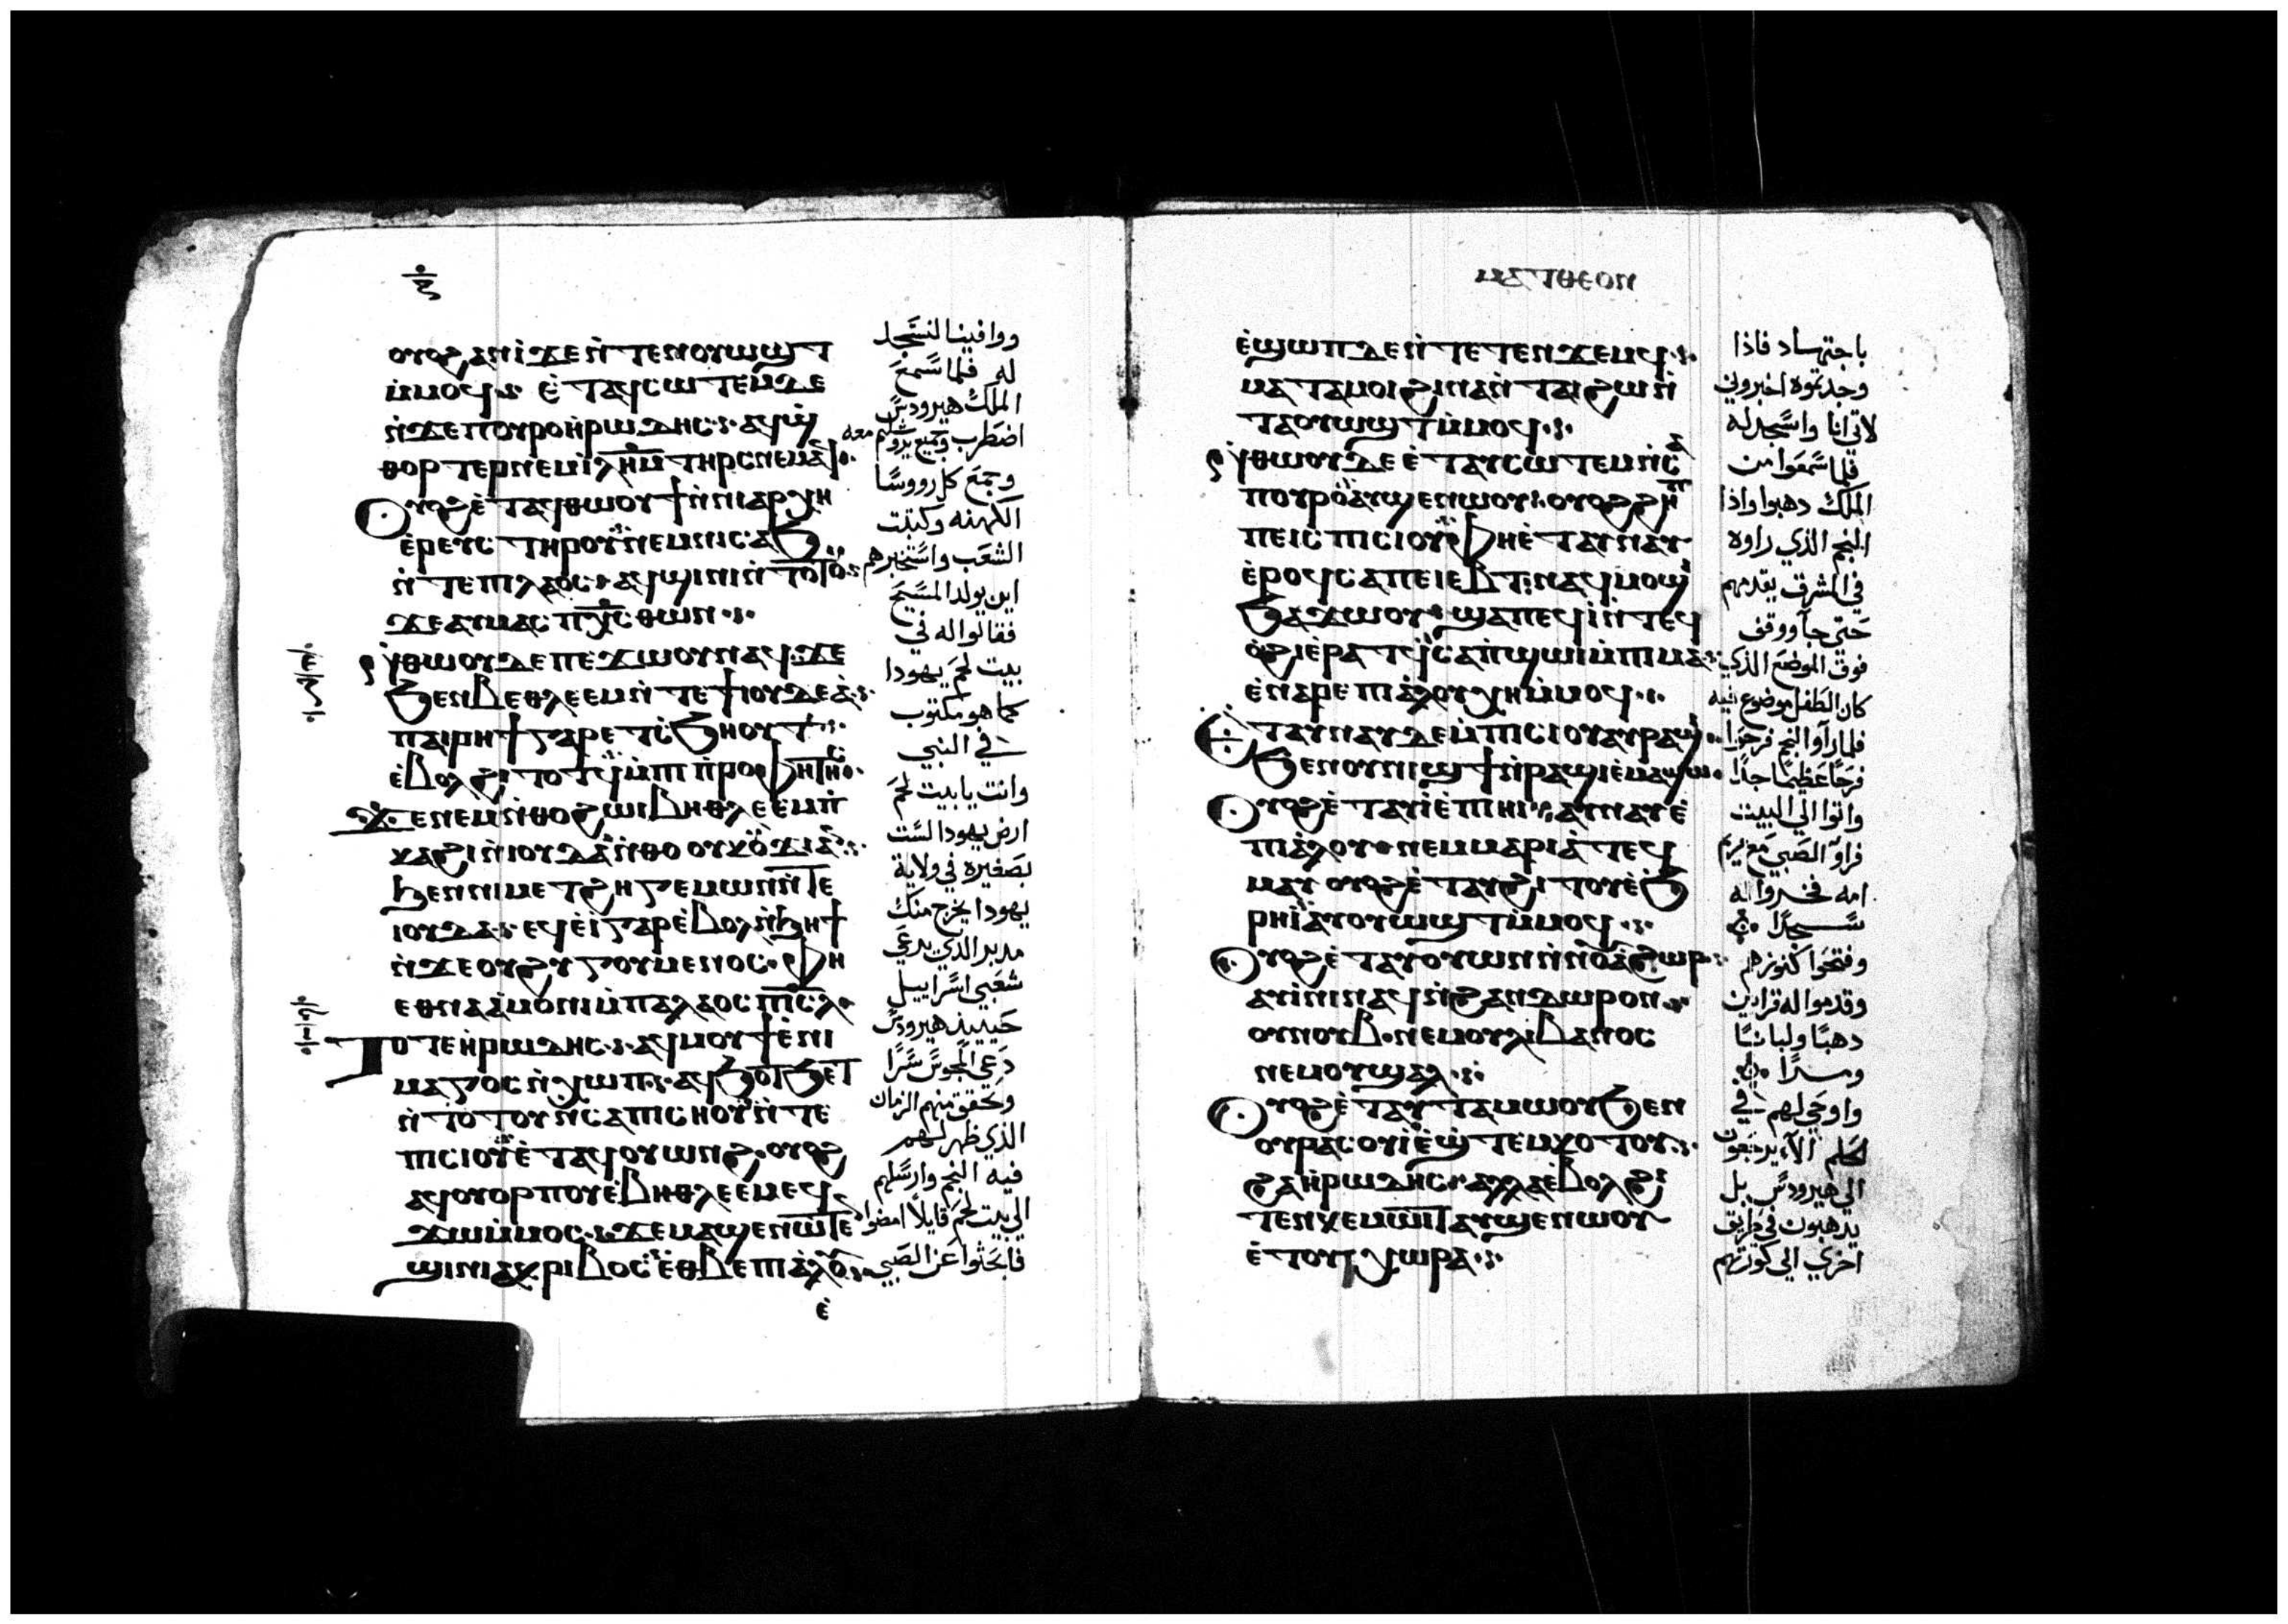 ⲟⲩⲟϩ ⲁⲛⲓ ϫⲉ ⲛ̀ⲧⲉⲛⲟⲩⲱϣⲧ
ⲙ̀ⲙⲟϥ ⲉ̀ⲧⲁϥⲥⲱⲧⲉⲙ ⲇⲉ
ⲛ̀ϫⲉ ⲡⲟⲩⲣⲟ ⲏ̀ⲣⲱⲇⲏⲥ ⲁϥϣ̀
ⲑⲟⲣⲧⲉⲣ ⲛⲉⲙ ⲓ̅ⲗ̅ⲏ̅ⲙ̅ ⲧⲏⲣⲥ ⲛⲉⲙⲁϥ
ⲟⲩⲟϩ ⲉ̀ⲧⲁϥⲑⲱⲟⲩϯ ⲛ̀ⲛⲓⲁⲣⲭⲏ
ⲉ̀ⲣⲉⲩⲥ ⲧⲏⲣⲟⲩ ⲛⲉⲙ ⲛⲓⲥⲁϧ
ⲛ̀ⲧⲉ ⲡⲓⲗⲁⲟⲥ ⲁϥϣⲓⲛⲓ ⲛ̀ⲧⲟⲧⲟⲩ
ϫⲉ ⲁⲩⲙⲁⲥ ⲡ̅ⲭ̅ⲥ̅ ⲑⲱⲛ
ⲛ̀ⲑⲱⲟⲩ ⲇⲉ ⲡⲉϫⲱⲟⲩ ⲛⲁϥ ϫⲉ
ϧⲉⲛ ⲃⲉⲑⲗⲉⲉⲙ ⲛ̀ⲧⲉ ϯⲓⲟⲩⲇⲉⲁ̀
ⲡⲁⲓⲣⲏϯ ⲅⲁⲣ ⲉⲧⲥ̀ϧⲏⲟⲩⲧ
ⲉ̀ⲃⲟⲗϩⲓⲧⲟⲧϥ ⲙ̀ⲡⲓⲡ̀ⲣⲟⲫⲏⲧⲏⲥ
ϫⲉ ⲛⲉⲙ ⲛ̀ⲑⲟ ϩⲱⲓ ⲃⲏⲑⲗⲉⲉⲙ ⲡ̀
ⲕⲁϩⲓ ⲛ̀ⲓⲟⲩⲇⲁ ⲛ̀ⲑⲟ ⲟⲩⲕⲟⲩϫⲓ ⲁⲛ
ϧⲉⲛ ⲛⲓⲙⲉⲧϩⲏⲅⲉⲙⲱⲛ ⲛ̀ⲧⲉ
ⲓⲟⲩⲇⲁ ⲉϥⲉ̀ⲓ̀ ⲅⲁⲣ ⲉ̀ⲃⲟⲗ ⲛ̀ϧⲏϯ
ⲛ̀ϫⲉ ⲟⲩϩⲩⲅⲟⲩⲙⲉⲛⲟⲥ ⲫⲏ
ⲉⲑⲛⲁⲁ̀ⲙⲟⲛⲓ ⲙ̀ⲡⲁⲗⲁⲟⲥ ⲡ̅ⲓ̅ⲥ̅ⲗ̅
ⲧⲟⲧⲉ ⲏ̀ⲣⲱⲇⲏⲥ ⲁϥⲙⲟⲩϯ ⲉ̀ⲛⲓ
ⲙⲁⲅⲟⲥ ⲛ̀ⲭⲱⲡ ⲁϥϧⲟⲧϧⲉⲧ
ⲛ̀ⲧⲟⲧⲟⲩ ⲛ̀ⲥⲁ ⲡⲓⲥⲏⲟⲩ ⲛ̀ⲧⲉ
ⲡⲓⲥⲓⲟⲩ ⲉ̀ⲧⲁϥⲟⲩⲱⲛϩ ⲟⲩⲟϩ
ⲁϥⲟⲩⲟⲣⲡⲟⲩ ⲉ̀ⲃⲏⲑⲗⲉⲉⲙ ⲉϥ
ϫⲱ ⲙ̀ⲙⲟⲥ ϫⲉ ⲙⲁϣⲉⲛⲱⲧⲉⲛ
ϣⲓⲛⲓ ⲁⲕⲣⲓⲃⲟⲥ ⲉ̀ⲑⲃⲉ ⲡⲓⲁ̀ⲗⲟⲩ
ⲉ̀
ووافينا لنسجد
له فلما سمع
الملك هيرودس
اضطرب وجميع يروشليم معه
وجمع كل رووسا
الكهنه وكتبت
الشعب واستخبرهم
اين يولد المسيح
فقالوا له في
بيت لحم يهودا
كما هو مكتوب
في النبي
وانت يا بيت لحم
ارض يهودا لست
بصغيره في ولاية
يهودا يخرج منك
مدبر الذي يرعي
شعبي اسراييل
حينيذ هيرودس
دعي المجوس سرا
وتحقق منهم الزمان
الذي ظهر لهم
فيه النجم وارسلهم
الي بيت لحم قايلا امضوا
فابحثوا عن الصبي
ⲙⲁⲧⲑⲉⲟⲛ
ⲉ̀ϣⲱⲡ ⲇⲉ ⲛ̀ⲧⲉⲧⲉⲛϫⲉⲙϥ
ⲙⲁⲧⲁⲙⲟⲓ ϩⲓⲛⲁ ⲛ̀ⲧⲁⲓ ϩⲱ ⲛ̀
ⲧⲁⲟⲩⲱϣⲧ ⲙ̀ⲙⲟϥ
ⲛ̀ⲑⲱⲟⲩ ⲇⲉ ⲉ̀ⲧⲁⲩⲥⲱⲧⲉⲙ ⲛ̀ⲥⲁ
ⲡⲟⲩⲣⲟ ⲁⲩϣⲉⲛⲱⲟⲩ ⲟⲩⲟϩ ϩⲏⲡ
ⲡⲉ ⲓⲥ ⲡⲓⲥⲓⲟⲩ ⲫⲏ ⲉ̀ⲧⲁⲩⲛⲁⲩ
ⲉ̀ⲣⲟϥ ⲥⲁⲡⲉⲓⲉⲃⲧ ⲛⲁϥⲙⲟϣⲓ
ϧⲁϫⲱⲟⲩ ϣⲁⲡⲉϥⲓ̀ ⲛ̀ⲧⲉϥ
ⲟ̀ϩⲓ ⲉ̀ⲣⲁⲧϥ ⲥⲁⲡ̀ϣⲱⲓ ⲙ̀ⲡⲓⲙⲁ
ⲉ̀ⲛⲁⲣⲉ ⲡⲓⲁ̀ⲗⲟⲩ ⲭⲏ ⲙ̀ⲙⲟϥ
ⲉ̀ⲧⲁⲩⲛⲁⲩ ⲇⲉ ⲙ̀ⲡⲓⲥⲓⲟⲩ ⲁⲩⲣⲁϣⲓ
ϧⲉⲛ ⲟⲩⲛⲓϣϯ ⲛ̀ⲣⲁϣⲓ ⲉ̀ⲙⲁϣⲱ
ⲟⲩⲟϩ ⲉ̀ⲧⲁⲩⲓ̀ ⲉ̀ⲡⲓⲏⲓ ⲁⲩⲛⲁⲩ ⲉ̀
ⲡⲓⲁ̀ⲗⲟⲩ ⲛⲉⲙ ⲙⲁⲣⲓⲁ̀ ⲧⲉϥ
ⲙⲁⲩ ⲟⲩⲟϩ ⲉ̀ⲧⲁⲩϩⲓⲧⲟⲩ ⲉ̀ϧ
ⲣⲏⲓ ⲁⲩⲟⲩⲱϣⲧ ⲙ̀ⲙⲟϥ
ⲟⲩⲟϩ ⲉ̀ⲧⲁⲩⲟⲩⲱⲛ ⲛ̀ⲛⲟⲩⲁϩⲱⲣ
ⲁⲩⲓ̀ⲛⲓ ⲛⲁϥ ⲛ̀ϩⲁⲛⲇⲱⲣⲟⲛ
ⲟⲩⲛⲟⲩⲃ ⲛⲉⲙ ⲟⲩⲗⲓⲃⲁⲛⲟⲥ
ⲛⲉⲙ ⲟⲩϣⲁⲗ
ⲟⲩⲟϩ ⲉ̀ⲧⲁⲩⲧⲁⲙⲱⲟⲩ ϧⲉⲛ
ⲟⲩⲣⲁⲥⲟⲩⲓ̀ ⲉ̀ϣ̀ⲧⲉⲙⲕⲟⲧⲟⲩ
ϩⲁ ⲏ̀ⲣⲱⲇⲏⲥ ⲁⲗⲗⲁ ⲉ̀ⲃⲟⲗϩⲓ
ⲧⲉⲛ ⲕⲉⲙⲱⲓⲧ ⲁⲩϣⲉⲛⲱⲟⲩ
ⲉ̀ⲧⲟⲩⲭⲱⲣⲁ
باجتهاد فاذا
وجدتموه اخبروني
لاتي انا واسجد له
فلما سمعوا من
الملك دهبوا واذا
النجم الذي راوه
في المشرق يقدمهم
حتي جا ووقف
فوق الموضع الذي
كان الطفل موضوع فيه
فلما رأوا النجم فرحوا
فرحا عظيما جدا
واتوا الي البيت
فراوا الصبي مع مريم
امه فخروا له
سجدا
وفتحوا كنوزهم
وقدموا له قرابين
دهبا ولبانا
ومرا
واوحي لهم في
الحلم الا يرجعون
الي هيرودس بل
يدهبون في طريق
اخري الي كورتهم